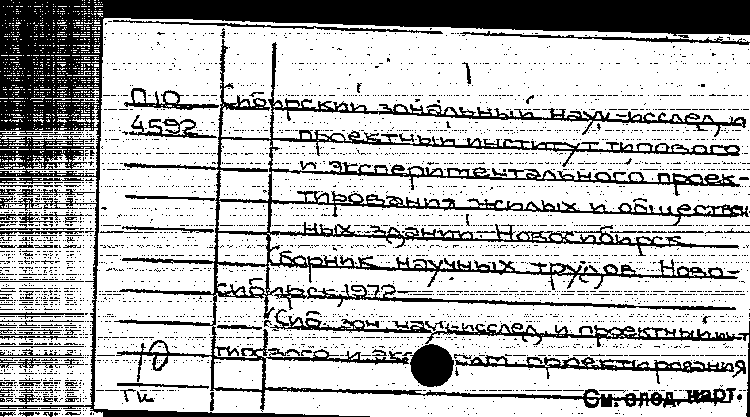 П10 Сибирский зональный науч-исслед. и
4592 проектный институт типового
и экспериментального проек-
тирования жилых и обществен
ных зданий. Новосибирск.
Сборник научных трудов. Ново-
сибирск, 1972
(Сиб. зон. науч-исслед. и проектный ин-т
10 типового и проектирования
См. след. карт.